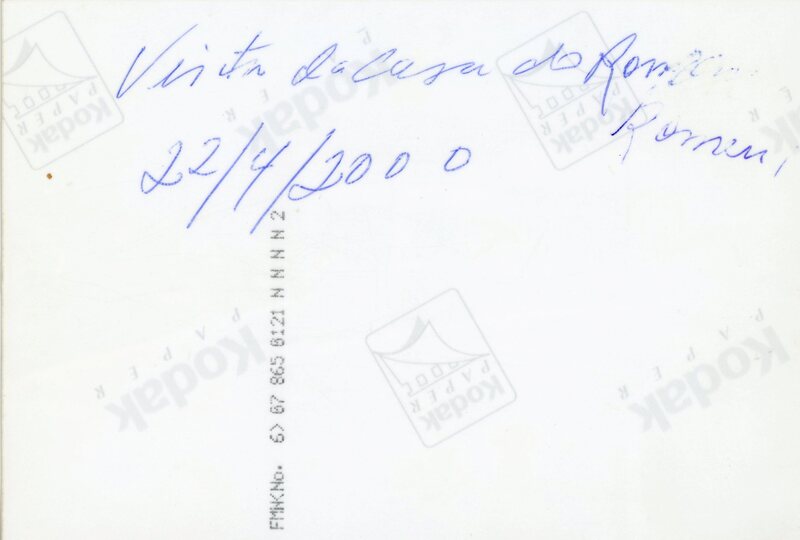 Visita da Casa do Roman
Romeni
22/4/2000
FMWKNo. 6> 67 865 0121 N N N N 2
Kodak
PAPER
Kodak
PAPER
Kodak
PAPER
Kodak
PAPER
Kodak
PAPER
Kodak
PAPER
Kodak
PAPER